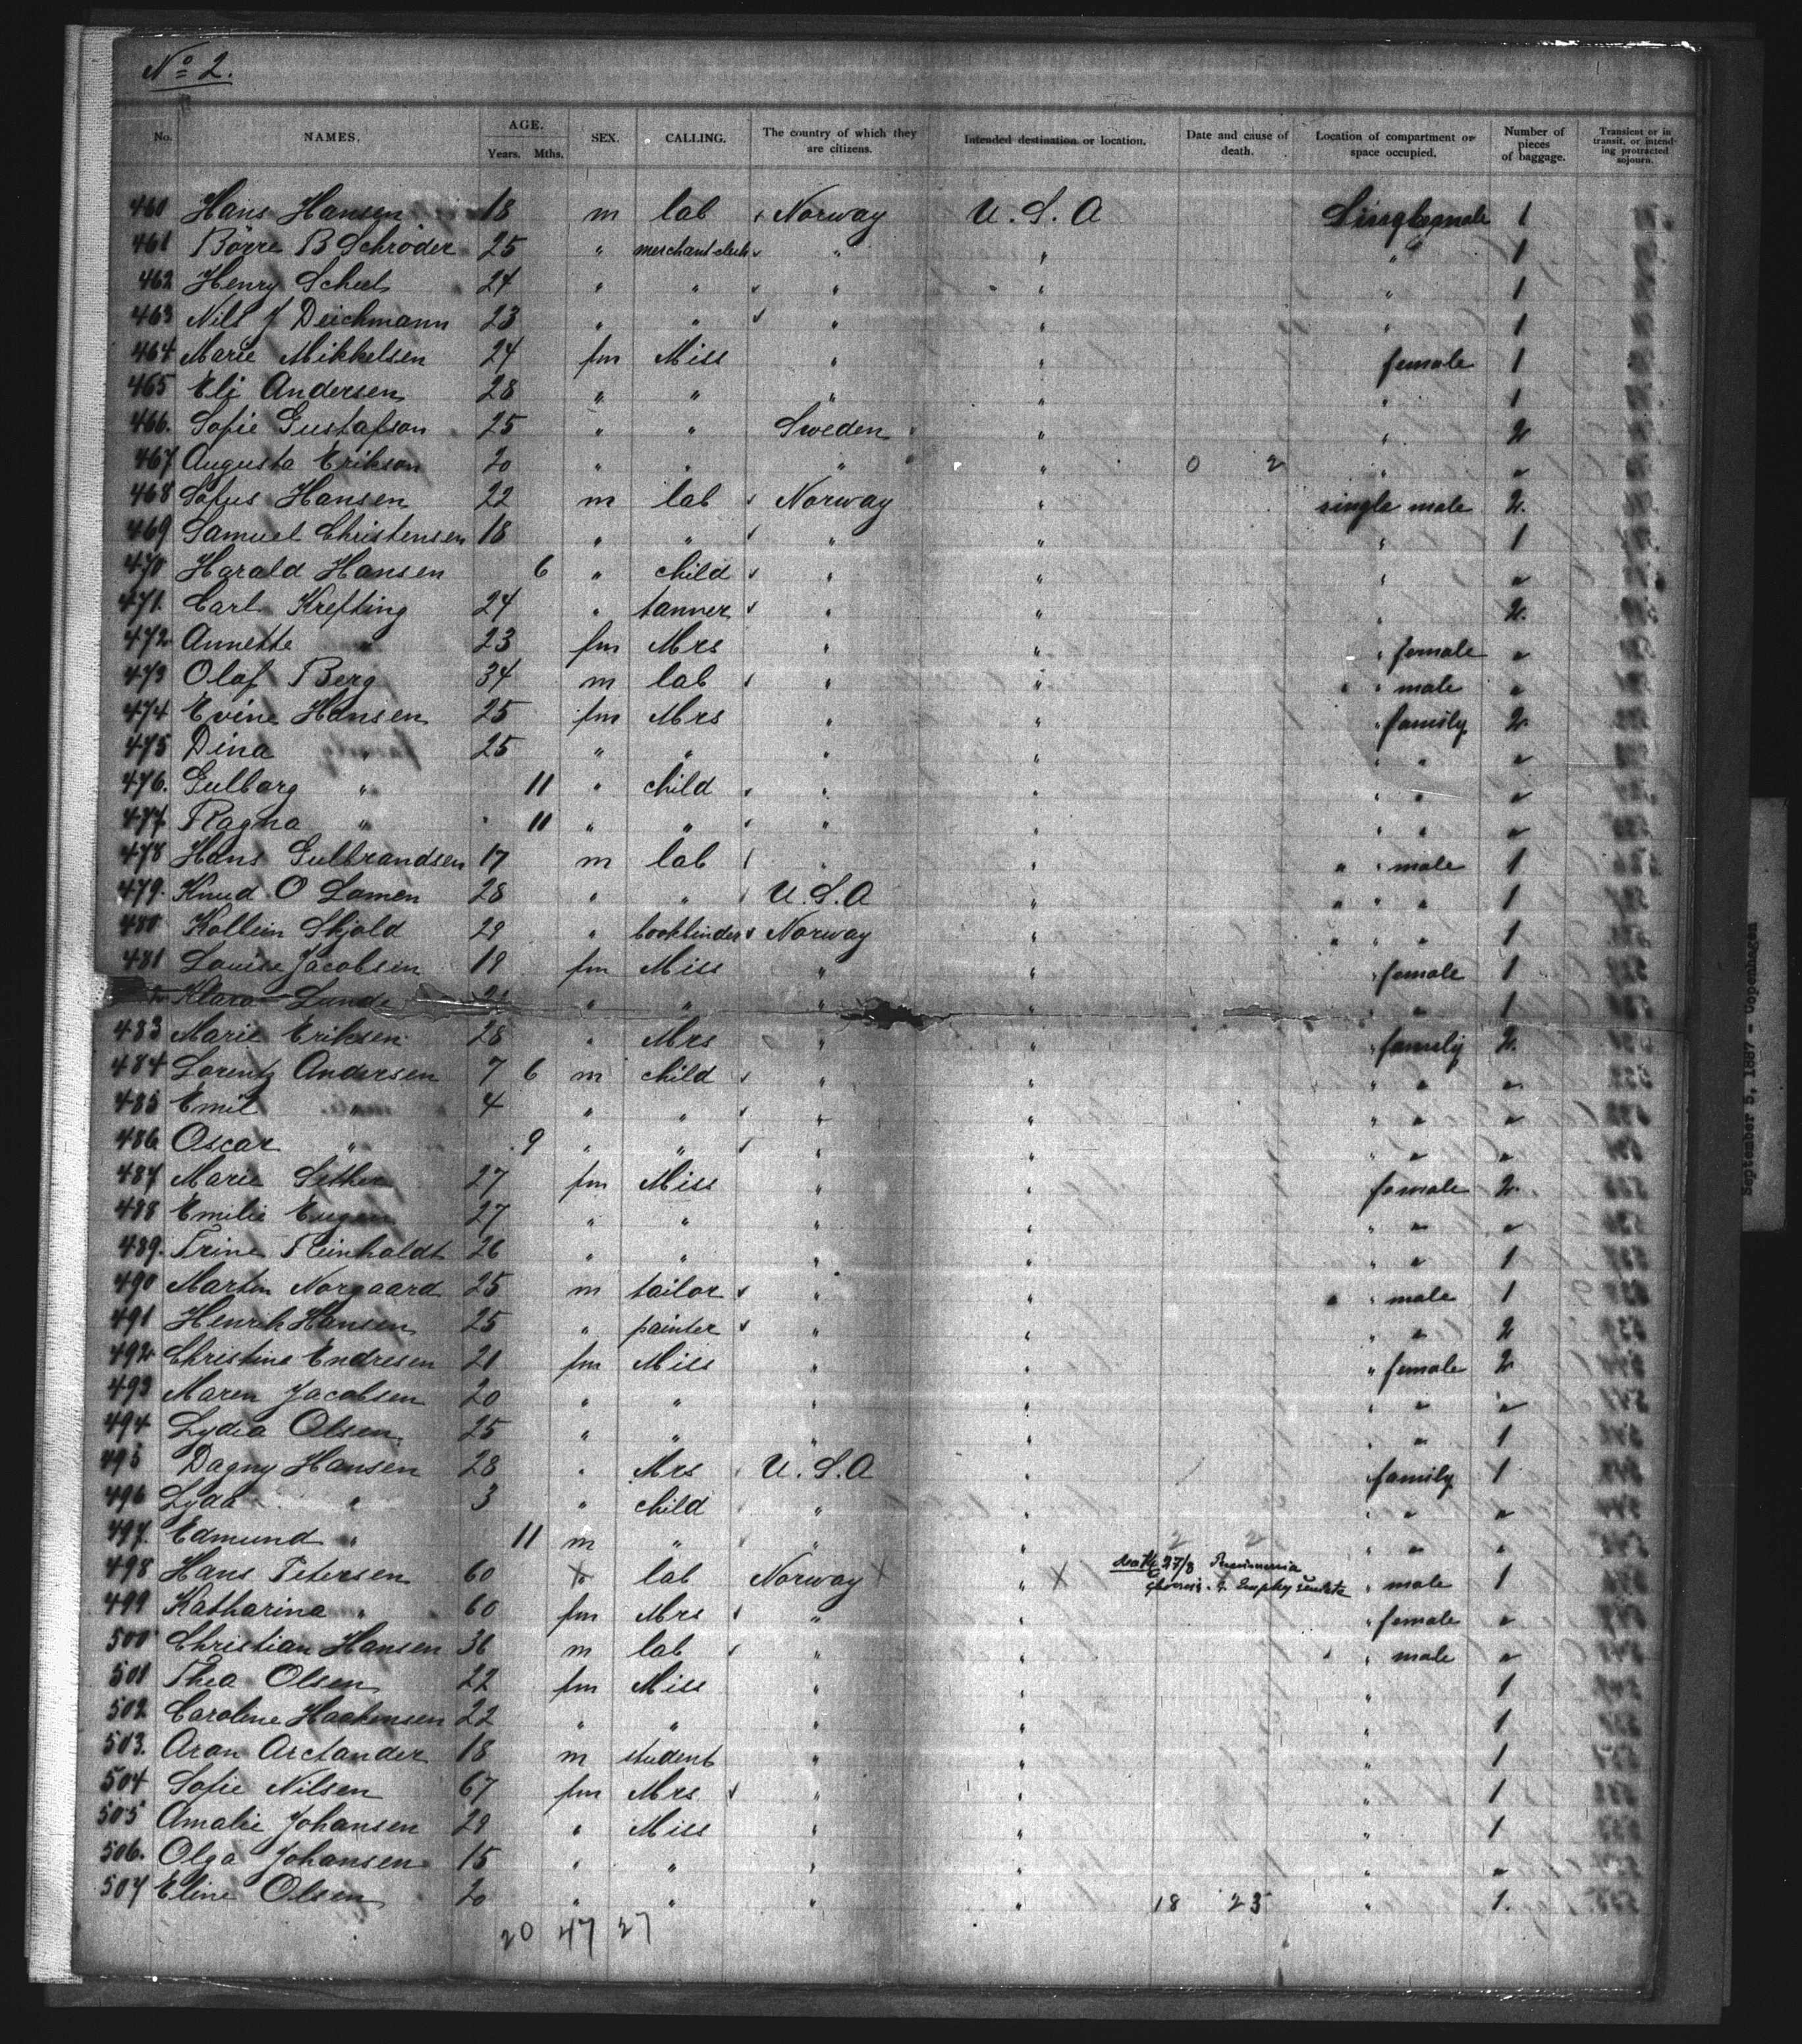 No 2.
No. NAMES. AGE. Years. Mths. SEX. CALLING. The country of which they are citizens. Intended destination or location. Date and cause of death. Location of compartment or space occupied. Number of pieces of baggage. Transient or in transit, or intending protracted sojourn.
460 Hans Hansen 18 m lab Norway U.S.A Single male 1
461 Börre B Schröder 25 " merchant clerk " " " 1
462 Henry Scheel 24 " " " " " 1
463 Nils J Deichmann 23 " " " " " 1
464 Marie Mikkelsen 24 fm Miss " " female 1
465 Eli Andersen 28 " " " " " 1
466. Sofie Gustafson 25 " " Sweden " " 2
467 Augusta Erikson 20 " " " " 0 2 " "
468 Sofus Hansen 22 m lab Norway " single male 2.
469 Samuel Christensen 18 " " " " " 1
470 Harald Hansen 6 " child " " " "
471. Carl Krefting 24 " tanner " " " 2.
472 Annette " 23 fm Mrs " " " female "
473 Olaf Berg 34 m lab " " " " male "
474 Evine Hansen 25 fm Mrs " " " family 2
475 Dina " 25 " " " " " " "
476. Gulborg " 11 " child " " " " "
477 Ragna " 11 " " " " " " "
478 Hans Gulbrandsen 17 m lab " " " " male 1
479. Knud O Lomen 28 " " U.S.A " " " " 1
480 Kolbein Skjold 29 " bookbinder Norway " " " " 1
481 Louise Jacobsen 19 fm Miss " " " female 1
Klara Lunde " " " " " " 1
483 Marie Eriksen 28 " Mrs " " " family 2.
484 Lorentz Andersen 7 6 m child " " " " "
485 Emil " 4 " " " " " " "
486 Oscar " 9 " " " " " " "
487 Marie Sether 27 fm Miss " " female 2.
488 Emilie 27 " " " " " " "
489. Trine Reinholdt 26 " " " " " " 1
490 Martin Norgaard 25 m tailor " " " " male 1
491 Henrik Hansen 25 " painter " " " " 2
492 Christine Endresen 21 fm Miss " " " female 2
493 Maren Jacobsen 20 " " " " " " "
494 Lydia Olsen 25 " " " " " " 1
495 Dagny Hansen 28 " Mrs U.S.A " family 1
496 Lyda " 3 " child " " " " "
497. Edmund " 11 m " " " 2 2 " " "
498 Hans Petersen 60 lab Norway X " X 27/8 Pneumonia " male 1
499 Katharina " 60 fm Mrs " " " female "
500 Christian Hansen 36 m lab " " " " male "
501 Thea Olsen 22 fm Miss " " " 1
502 Caroline Haakensen 22 " " " " " 1
503. Aron Arctander 18 m student " " " 1
504 Sofie Nilsen 67 fm Mrs " " " 1
505 Amalie Johansen 29 " Miss " " " 1
506. Olga Johansen 15 " " " " " "
507 Eline Olsen 20 " " " " 18 23 " 1.
20 47 27
September 5, 1887 - Copenhagen